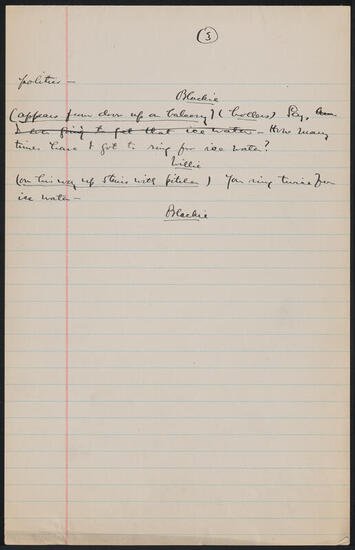 (5)
politics —
Blackie
(appears from door up on balcony) (hollers) Say,
I am going to get that ice water — How many
times have I got to ring for ice water?
Willie
(on his way up stairs with pitcher) You ring twice for
ice water —
Blackie